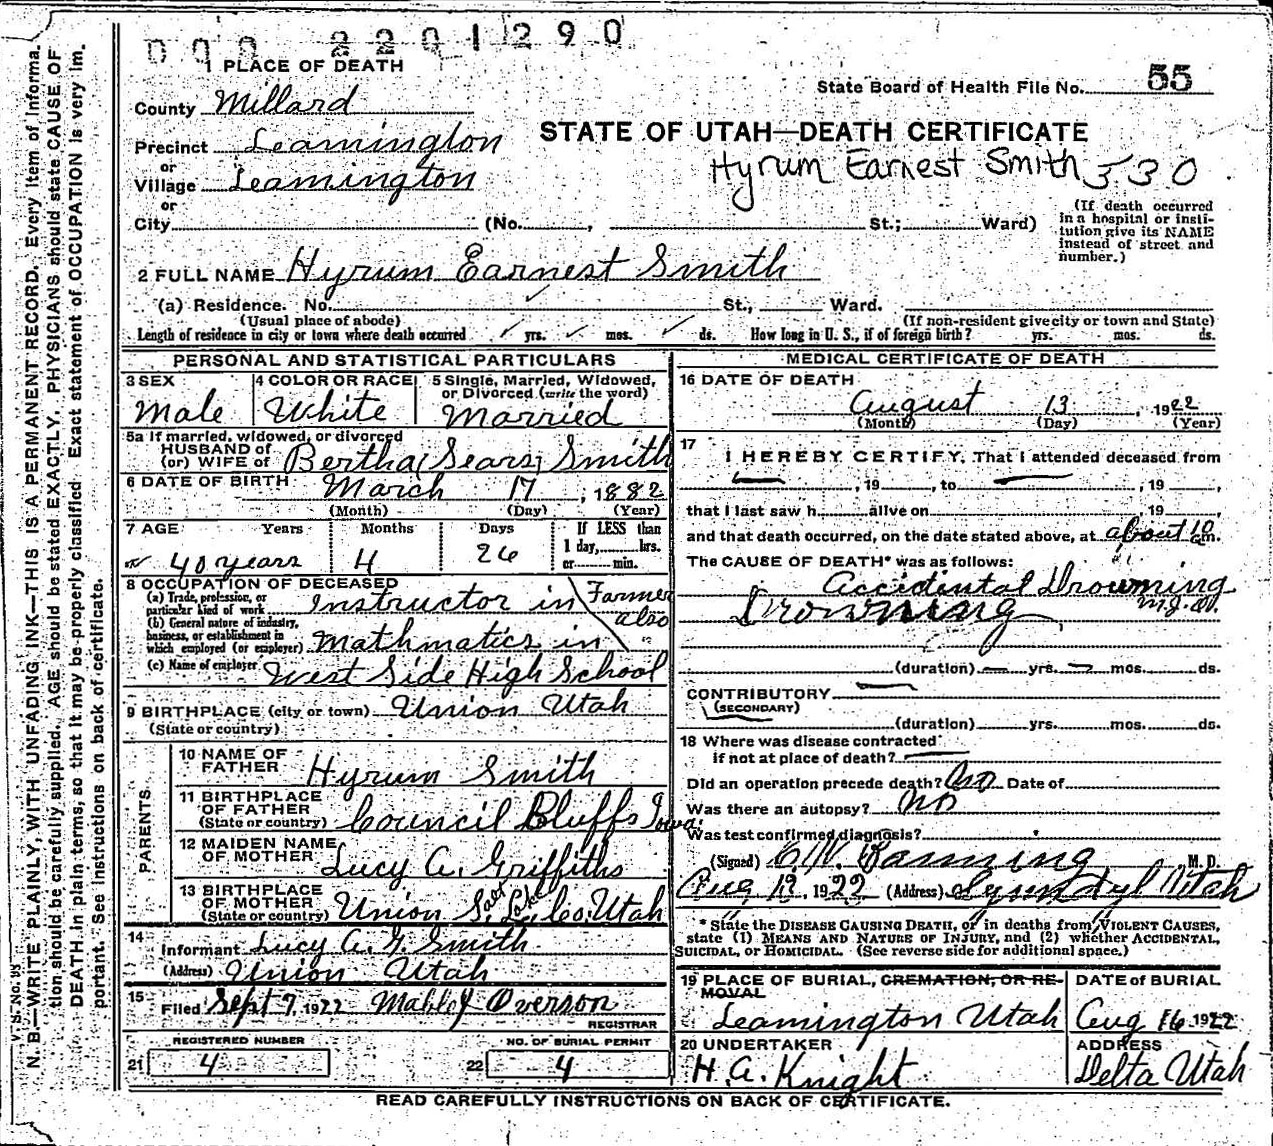 000 2201290
1 PLACE OF DEATH
State Board of Health File No. 55
County Millard
STATE OF UTAH—DEATH CERTIFICATE
Precinct Leamington
Hyrum Earnest Smith 530
or
Village Leamington
or
City (No. , St.; Ward)
(If death occurred
in a hospital or insti-
tution give its NAME
instead of street and
number.)
2 FULL NAME Hyrum Earnest Smith
(a) Residence. No. St., Ward.
(Usual place of abode) (If non-resident give city or town and State)
Length of residence in city or town where death occurred yrs. mos. ds. How long in U. S., if of foreign birth? yrs. mos. ds.
PERSONAL AND STATISTICAL PARTICULARS
3 SEX
Male
4 COLOR OR RACE
White
5 Single, Married, Widowed,
or Divorced (write the word)
Married
5a If married, widowed, or divorced
HUSBAND of
(or) WIFE of Bertha Sears Smith
6 DATE OF BIRTH March 17, 1882
(Month) (Day) (Year)
7 AGE Years Months Days If LESS than
1 day, hrs.
or min.
40 years 4 26
8 OCCUPATION OF DECEASED
(a) Trade, profession, or
particular kind of work Instructor in Farmer
also
(b) General nature of industry,
business, or establishment in
which employed (or employer) Mathmatics in
(c) Name of employer West Side High School
9 BIRTHPLACE (city or town) Union Utah
(State or country)
PARENTS
10 NAME OF
FATHER Hyrum Smith
11 BIRTHPLACE
OF FATHER
(State or country) Council Bluffs Iowa
12 MAIDEN NAME
OF MOTHER Lucy A. Griffiths
13 BIRTHPLACE
OF MOTHER
(State or country) Union Salt Lake Co. Utah
14
Informant Lucy A. G. Smith
(Address) Union Utah
15
Filed Sept 7, 1922 Overson
REGISTRAR
REGISTERED NUMBER NO. OF BURIAL PERMIT
21 4 22 4
MEDICAL CERTIFICATE OF DEATH
16 DATE OF DEATH
August 13, 1922
(Month) (Day) (Year)
17
I HEREBY CERTIFY, That I attended deceased from
, 19 , to , 19 ,
that I last saw h alive on , 19 ,
and that death occurred, on the date stated above, at about 10 am.
The CAUSE OF DEATH* was as follows:
Accidintal Drowning
Drowning
(duration) yrs. mos. ds.
CONTRIBUTORY
(SECONDARY)
(duration) yrs. mos. ds.
18 Where was disease contracted
if not at place of death?
Did an operation precede death? No Date of
Was there an autopsy? No
Was test confirmed diagnosis?
(Signed) Banning M. D.
Aug 13, 1922 (Address) Lynndyl Utah
*State the DISEASE CAUSING DEATH, or in deaths from VIOLENT CAUSES,
state (1) MEANS AND NATURE OF INJURY, and (2) whether ACCIDENTAL,
SUICIDAL, or HOMICIDAL. (See reverse side for additional space.)
19 PLACE OF BURIAL, CREMATION, OR RE-
MOVAL
Leamington Utah
DATE of BURIAL
Aug 16 1922
20 UNDERTAKER
H. A. Knight
ADDRESS
Delta Utah
READ CAREFULLY INSTRUCTIONS ON BACK OF CERTIFICATE.
V. S. No. 95
N. B.—WRITE PLAINLY, WITH UNFADING INK—THIS IS A PERMANENT RECORD. Every item of informa-
tion should be carefully supplied. AGE should be stated EXACTLY. PHYSICIANS should state CAUSE OF
DEATH in plain terms, so that it may be properly classified. Exact statement of OCCUPATION is very im-
portant. See instructions on back of certificate.